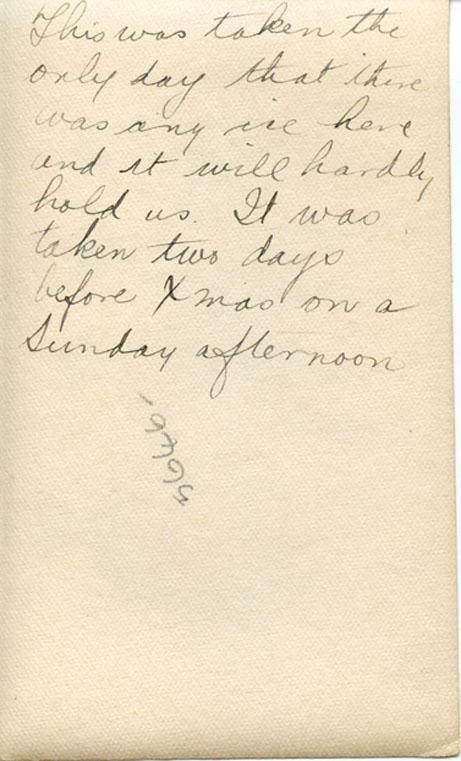 This was taken the
only day that there
was any ice here
and it will hardly
hold us. It was
taken two days
before Xmas on a
Sunday afternoon